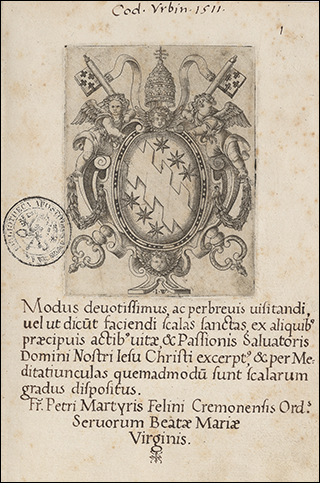 Cod. Vrbin. 1511.
1
Modus deuotissimus, ac perbreuis uisitandi,
uel ut dicūt faciendi scalas sanctas, ex aliquib⁹
præcipuis actib⁹ uitæ, & Passionis Saluatoris
Domini Nostri Iesu Christi excerpt⁹, & per Me-
ditatiunculas quemadmodū sunt scalarum
gradus dispositus.
Fr̃. Petri Martyris Felini Cremonensis Ord⁹.
Seruorum Beatæ Mariæ
Virginis.
BIBLIOTHECA APOSTOLICA